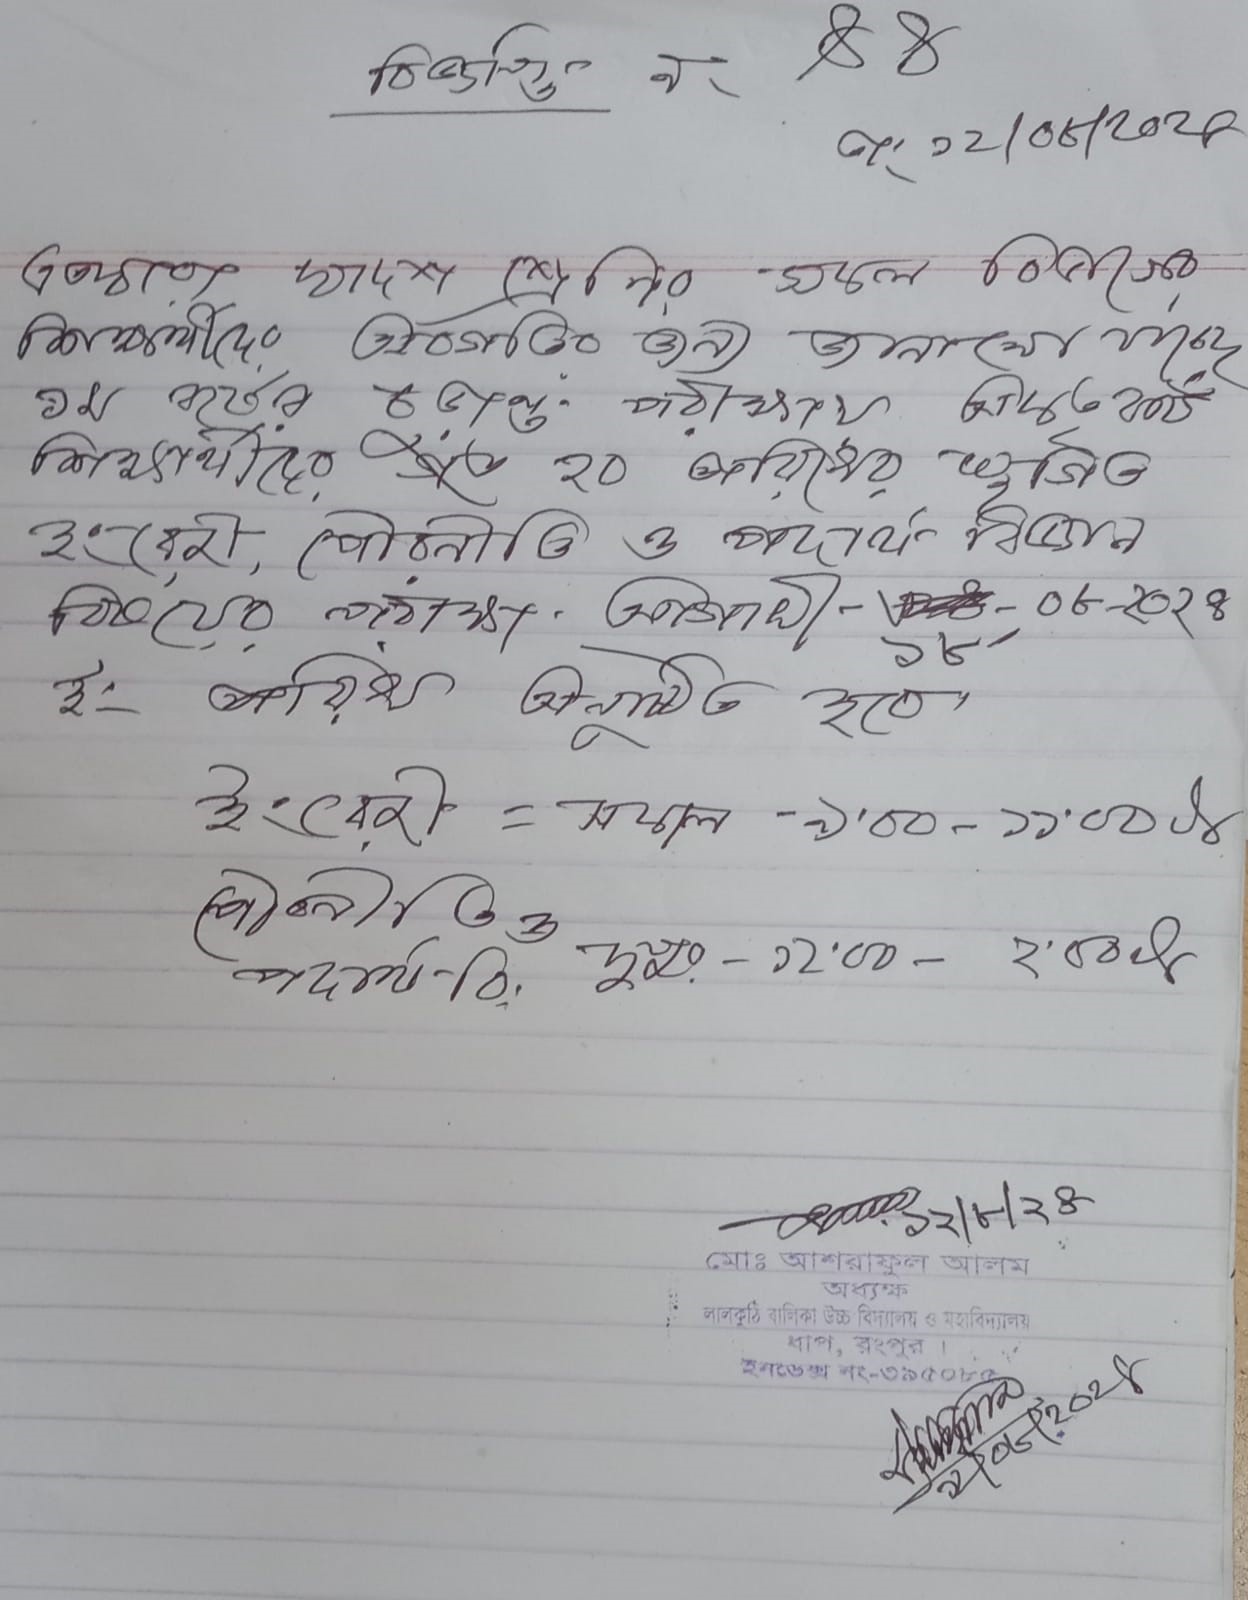 বিজ্ঞপ্তি নং ৪৪
তাং ১২/০৮/২০২৪
এতদ্বারা দ্বাদশ শ্রেণির সকল বিভাগের
শিক্ষার্থীদের অবগতির জন্য জানানো যাচ্ছে
১ম বর্ষের চূড়ান্ত পরীক্ষায়
শিক্ষার্থীদের গত ২০ তারিখের স্থগিত
ইংরেজী, পৌরনীতি ও পদার্থ বিজ্ঞান
বিষয়ের পরীক্ষা আগামী- ১৮-০৮-২০২৪
ইং তারিখ অনুষ্ঠিত হবে।
ইংরেজী = সকাল - ৯.০০ - ১১.০০ টা
পৌরনীতি ও
পদার্থ-বি. দুপুর - ১২.০০ - ২.০০ টা
১২/৮/২৪
মোঃ আশরাফুল আলম
অধ্যক্ষ
লালকুঠি বালিকা উচ্চ বিদ্যালয় ও মহাবিদ্যালয়
ধাপ, রংপুর ।
ইনডেক্স নং-৩৯৫০৮৫
১২/০৮/২০২৪